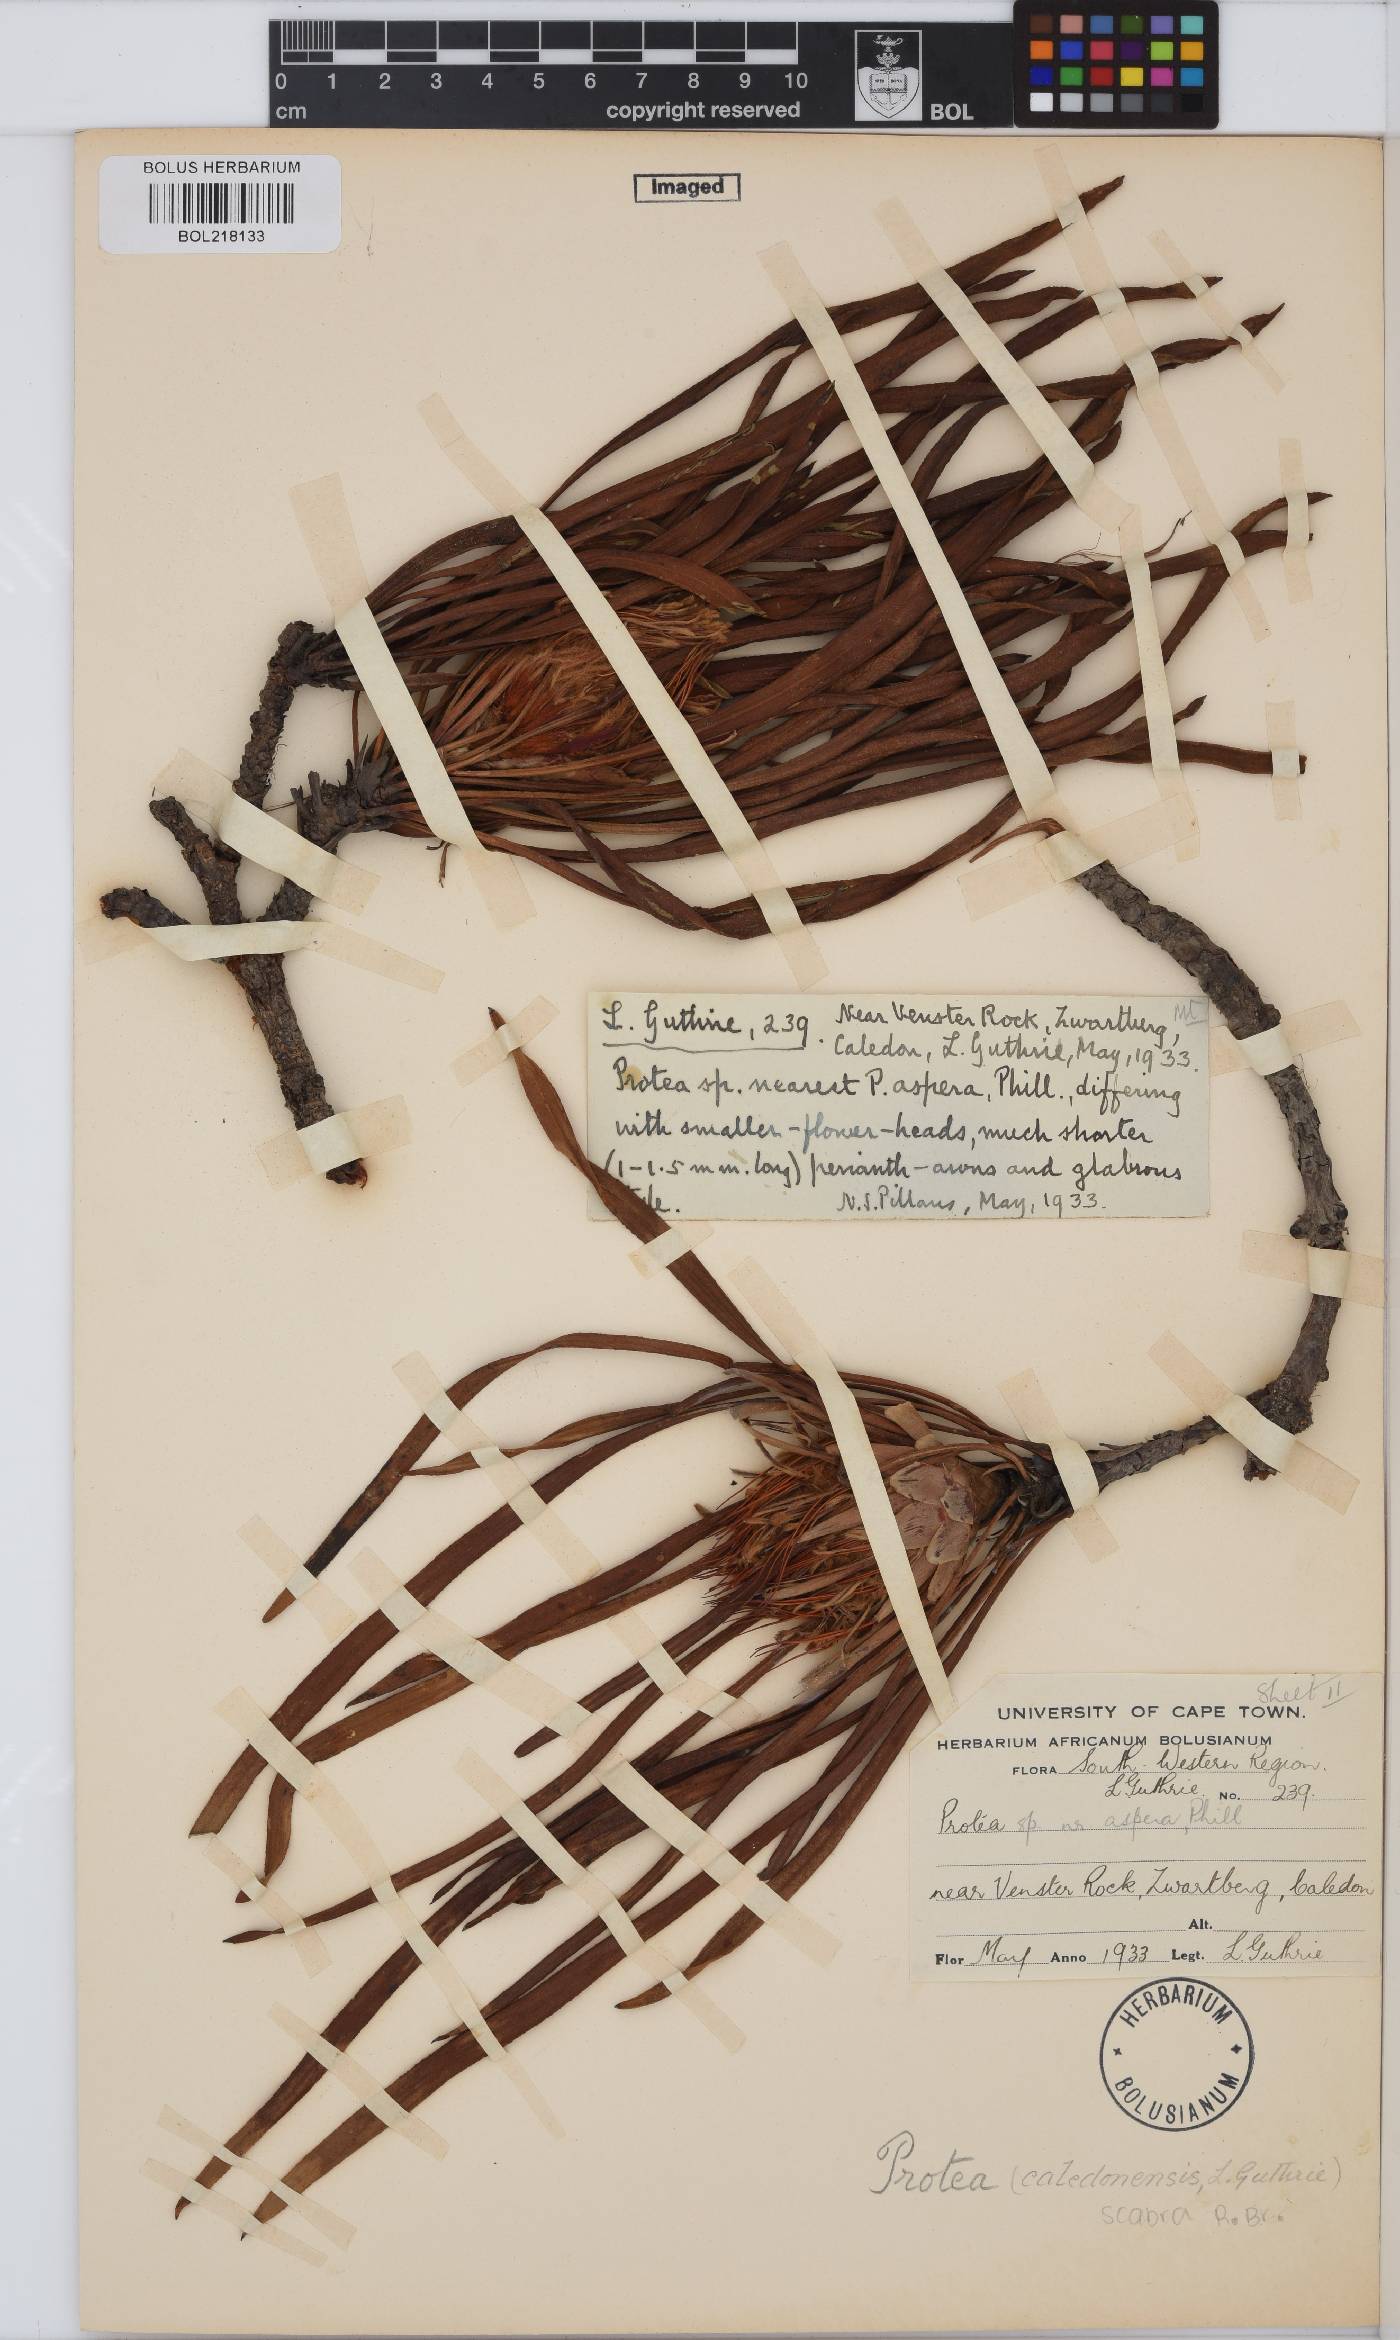 0 1 2 3 4 5 6 7 8 9 10
cm copyright reserved BOL
BOLUS HERBARIUM
BOL218133
Imaged
L. Guthrie, 239. Near Venster Rock, Zwartberg, Mt
Caledon, L. Guthrie, May, 1933.
Protea sp. nearest P. aspera, Phill., differing
with smaller-flower-heads, much shorter
(1-1.5 mm. long) perianth-awns and glabrous
style. N.S. Pillans, May, 1933.
Sheet II
UNIVERSITY OF CAPE TOWN.
HERBARIUM AFRICANUM BOLUSIANUM
FLORA South-Western Region.
L Guthrie. No. 239.
Protea sp nr aspera, Phill
near Venster Rock, Zwartberg, Caledon
Alt.
Flor May Anno 1933 Legt. L. Guthrie
HERBARIUM
BOLUSIANUM
Protea (caledonensis, L. Guthrie)
scabra R. Br.